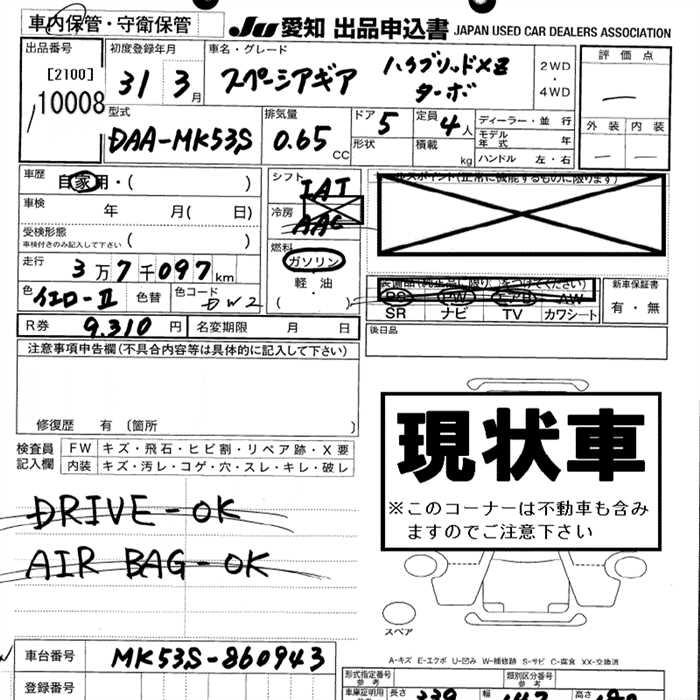 車内保管・守衛保管
JU 愛知 出品申込書 JAPAN USED CAR DEALERS ASSOCIATION
出品番号
[2100]
10008
初度登録年月
31 3月
車名・グレード
スペーシアギア ハイブリッドXZ
ターボ
2WD
・
4WD
評価点
—
外装 内装
— —
型式
DAA-MK53S
排気量
0.65 CC
ドア 5
形状
定員 4人
積載 kg
ディーラー・並行
モデル年式 年
ハンドル 左・右
車歴
自家用・( )
車検
年 月( 日)
受検形態
車検付きのみ記入して下さい ( )
走行
3万7千097km
色 イエローII 色替 色コード DW2
R券 9.310円 名変期限 月 日
シフト
IAT
冷房
AAC
燃料
ガソリン
・
軽・油
( )
(正常に機能するものに限ります)
PS PW エアB AW
SR ナビ TV カワシート
新車保証書
有・無
後日品
注意事項申告欄(不具合内容等は具体的に記入して下さい)
修復歴 有(箇所 )
検査員記入欄
FW キズ・飛石・ヒビ割・リペア跡・X要
内装 キズ・汚レ・コゲ・穴・スレ・キレ・破レ
DRIVE-OK
AIR BAG-OK
現状車
※このコーナーは不動車も含み
ますのでご注意下さい
スペア
A-キズ E-エクボ U-凹み W-補修跡 S-サビ C-腐食 XX-交換済
車台番号 MK53S-860943
登録番号
型式指定番号 参考
類別区分番号 参考
車庫証明用
長さ 339 幅 147 高さ